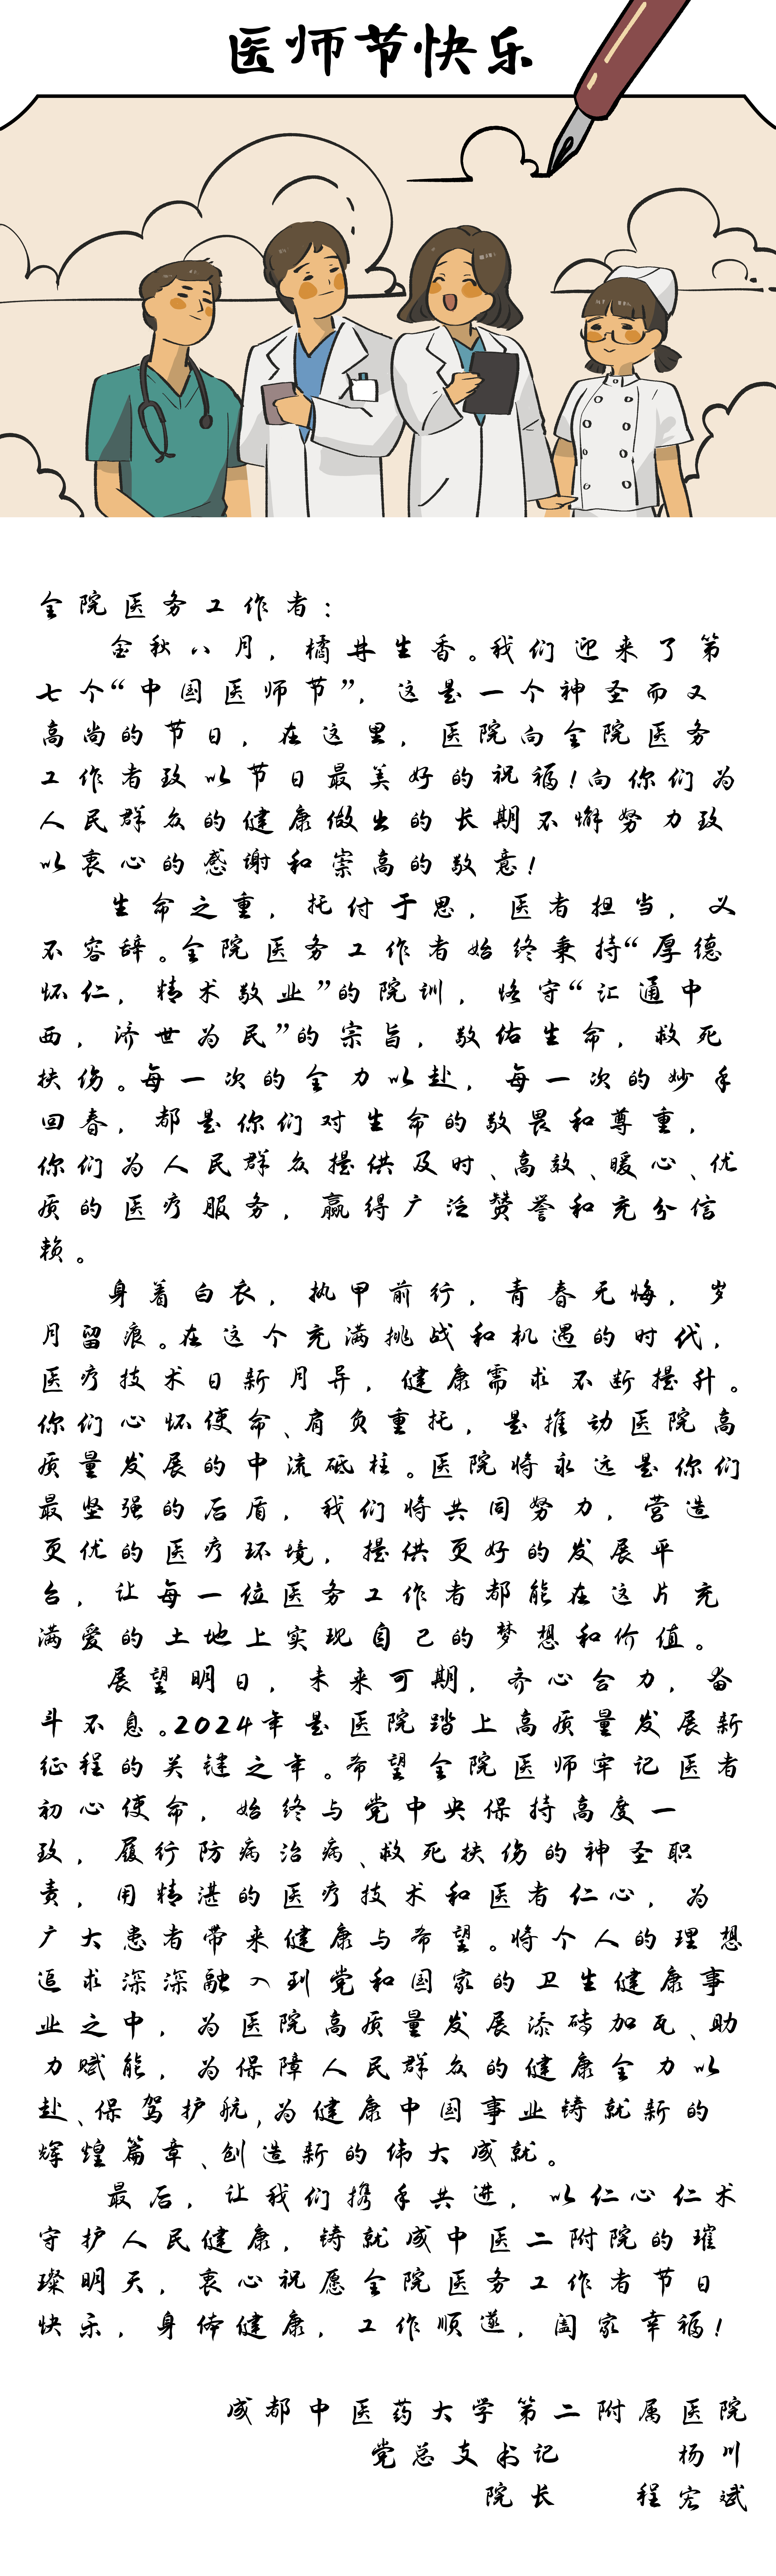 医师节快乐
全院医务工作者：
金秋八月，橘井生香。我们迎来了第
七个“中国医师节”，这是一个神圣而又
高尚的节日，在这里，医院向全院医务
工作者致以节日最美好的祝福！向你们为
人民群众的健康做出的长期不懈努力致
以衷心的感谢和崇高的敬意！
生命之重，托付于思，医者担当，义
不容辞。全院医务工作者始终秉持“厚德
怀仁，精术敬业”的院训，恪守“汇通中
西，济世为民”的宗旨，敬佑生命，救死
扶伤。每一次的全力以赴，每一次的妙手
回春，都是你们对生命的敬畏和尊重，
你们为人民群众提供及时、高效、暖心、优
质的医疗服务，赢得广泛赞誉和充分信
赖。
身着白衣，执甲前行，青春无悔，岁
月留痕。在这个充满挑战和机遇的时代，
医疗技术日新月异，健康需求不断提升。
你们心怀使命、肩负重托，是推动医院高
质量发展的中流砥柱。医院将永远是你们
最坚强的后盾，我们将共同努力，营造
更优的医疗环境，提供更好的发展平
台，让每一位医务工作者都能在这片充
满爱的土地上实现自己的梦想和价值。
展望明日，未来可期，齐心合力，奋
斗不息。2024年是医院踏上高质量发展新
征程的关键之年。希望全院医师牢记医者
初心使命，始终与党中央保持高度一
致，履行防病治病、救死扶伤的神圣职
责，用精湛的医疗技术和医者仁心，为
广大患者带来健康与希望。将个人的理想
追求深深融入到党和国家的卫生健康事
业之中，为医院高质量发展添砖加瓦、助
力赋能，为保障人民群众的健康全力以
赴、保驾护航,为健康中国事业铸就新的
辉煌篇章、创造新的伟大成就。
最后，让我们携手共进，以仁心仁术
守护人民健康，铸就成中医二附院的璀
璨明天，衷心祝愿全院医务工作者节日
快乐，身体健康，工作顺遂，阖家幸福！
成都中医药大学第二附属医院
党总支书记 杨川
院长 程宏斌